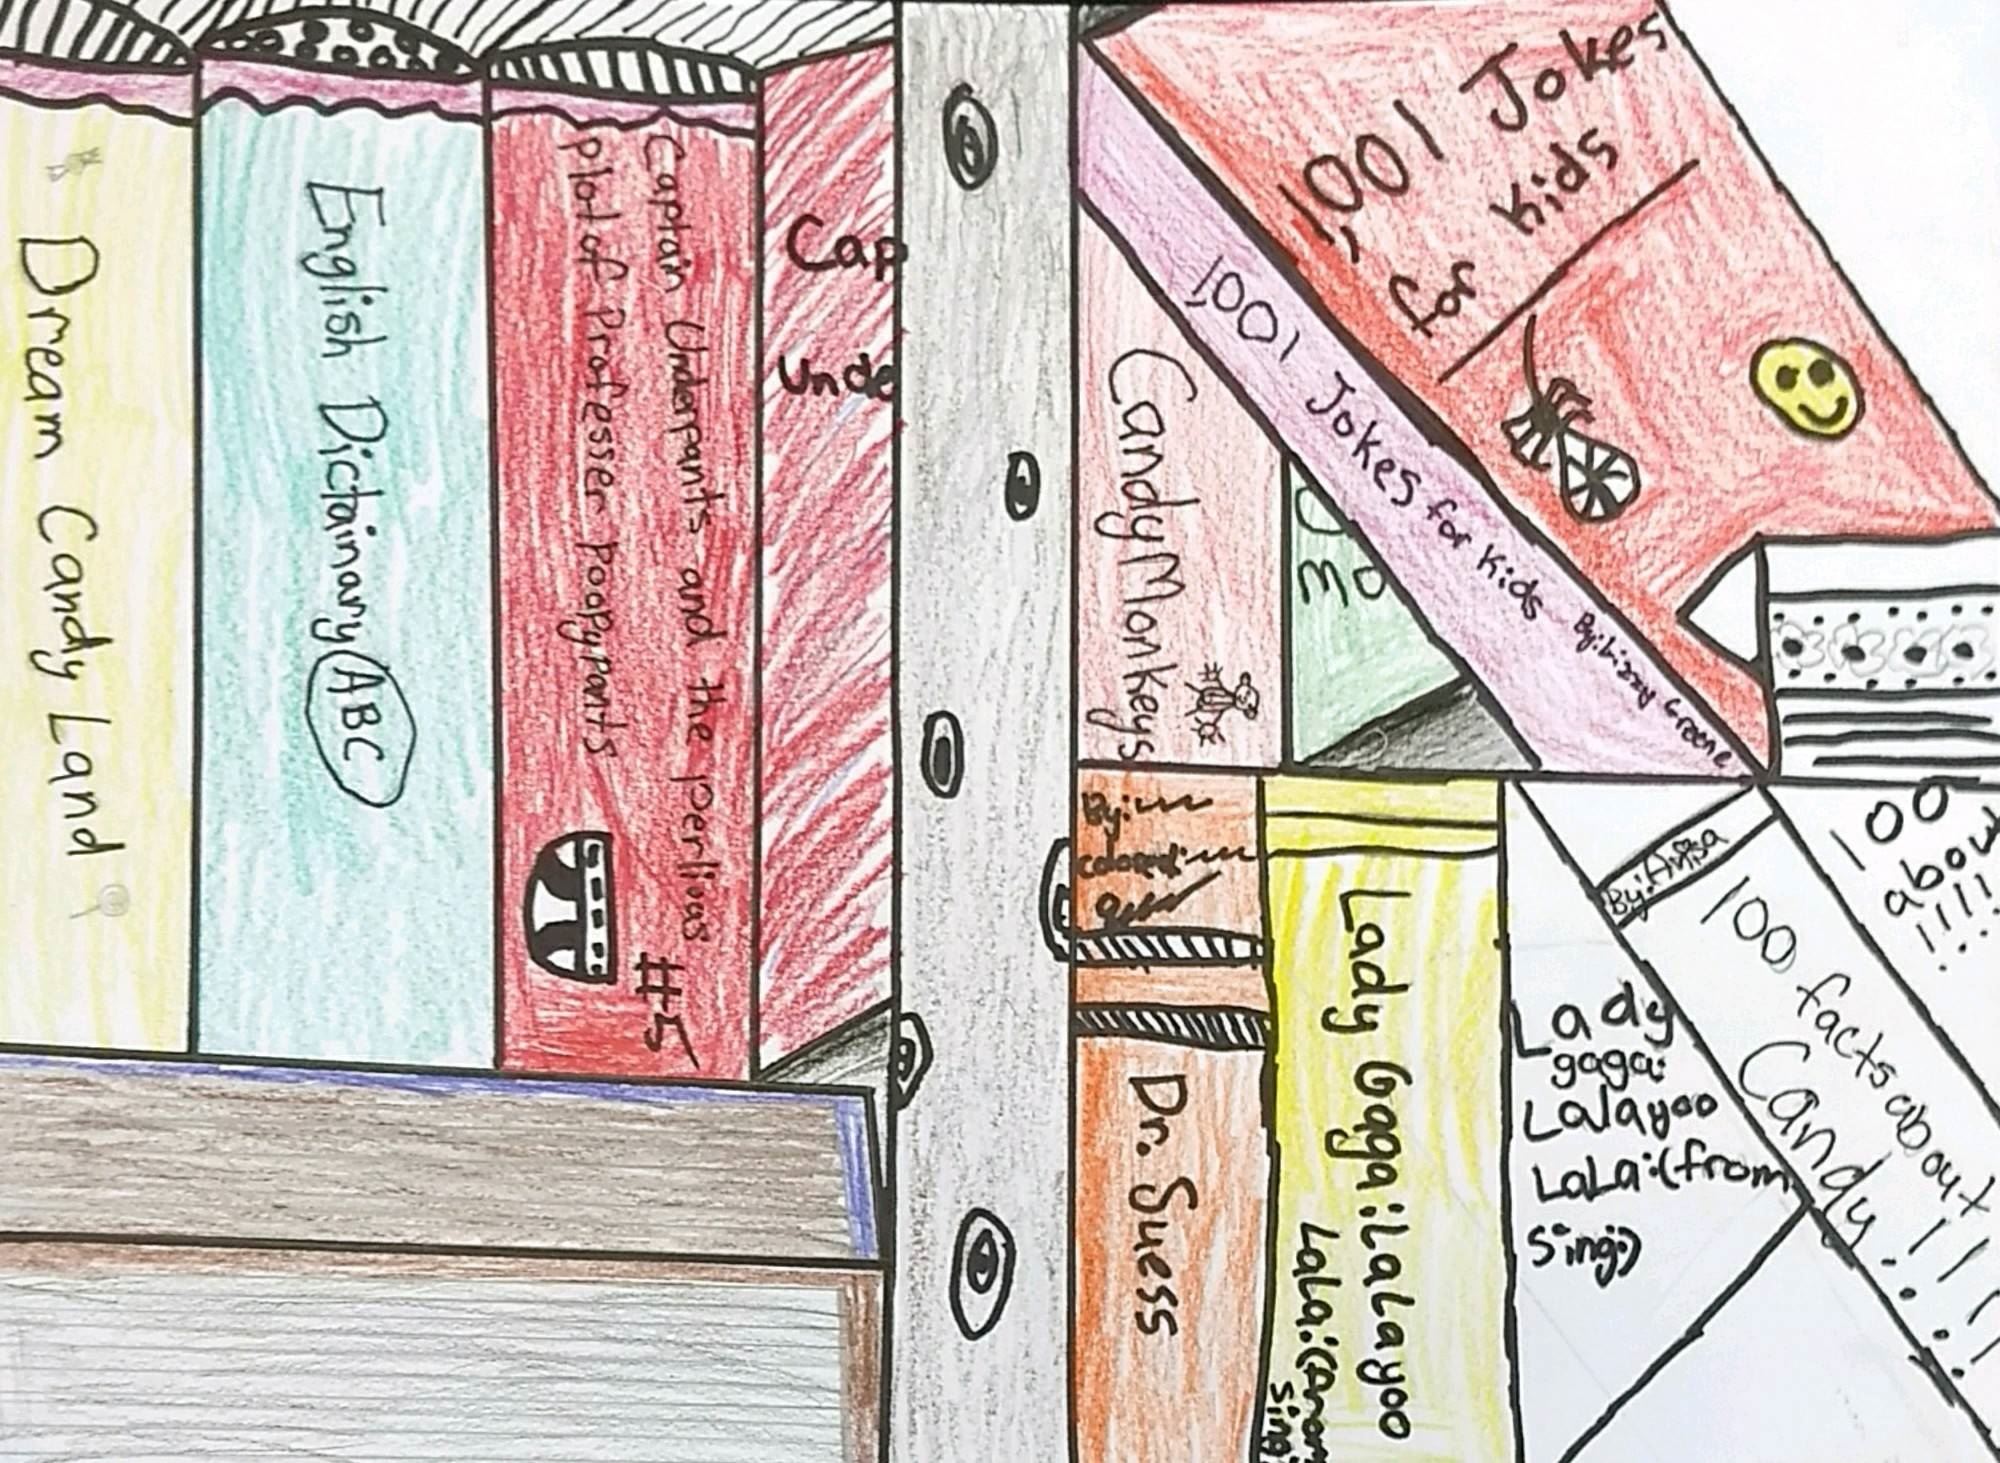 Dream Candy Land
English Dictainary
ABC
Captain Underpants and the perlious
plot of Professer PoopyPants
#5
Cap
Unde
Candy Monkeys
1,001 Jokes
for Kids
1,001 Jokes for Kids By: Lizzy Greene
By:
Dr. Suess
Lady Gaga: LaLaLayoo
LaLa:(from
Sing
Lady
gaga:
Lalayoo
LaLa:(from
Sing:)
By: Avisa
100 facts about
Candy!!!!
100
about
!!!!